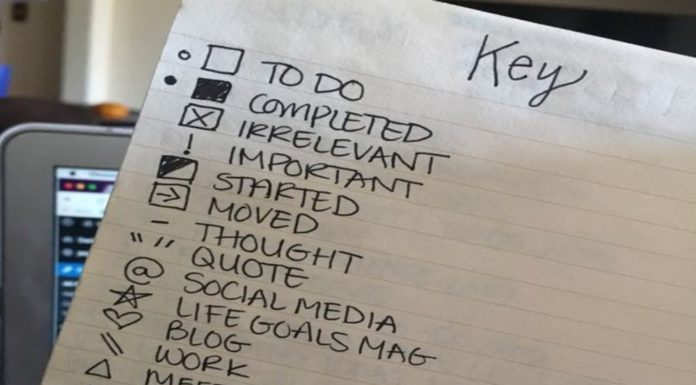 Key
TO DO
COMPLETED
IRRELEVANT
! IMPORTANT
STARTED
MOVED
– THOUGHT
" " QUOTE
@ SOCIAL MEDIA
LIFE GOALS MAG
BLOG
// WORK